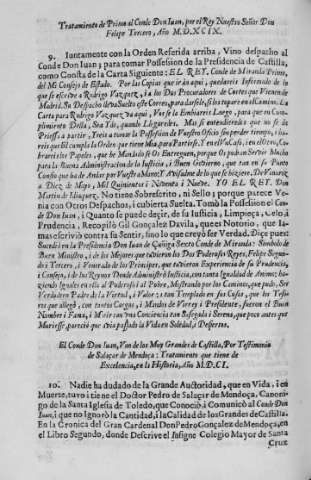 Tratamiento de Primo al Conde Don Iuan, por el Rey Nuestro Señor Don
Felipe Tercero, Año M.D.XCIX.
9. Iuntamente con la Orden Referida arriba, Vino despacho al
Conde Don Iuan; para tomar Possession de la Presidencia de Castilla,
como Consta de la Carta Siguiente: EL REY. Conde de Miranda Primo,
del Mi Consejo de Estado. Por las Copias que irán aqui, quedareis Informado de lo
que se escrive a Rodrigo Vazquez, i a los Dos Procuradores de Cortes que Vienen de
Madrid. Su Despacho
Carta para Rodrigo Vazquez va aqui,
plimiento Della, Sea Tal, quando Llegaredes. Mas si entendieredes que no se di
Priessa a partir, Ireis a tomar la Possession de Vuestro Oficio sin perder tiempo, i ha-
reis que El cumpla la Orden que tiene Mia, para Partirse.
brareis los Papeles, que he Mandado se Os Entreguen, porque Os podran Servir Mucho
para la Buena Administracion de la Iusticia, i Buen Govierno, que tan en Punto
Confio que ha de Andar por Vuestra Mano: Y Avisadme de lo que se hiziere. De
a Diez de Mayo, Mil Quinientos i Noventa i Nueve. YO EL REY. Don
Martin de Idiaquez. No tiene Sobrescrito, ni Sello; porque parece Ve-
nia con Otros Despachos, i cubierta Suelta. Tomò la Possession el Con-
de Don Iuan, i Quanto se puede dezir, de su Iusticia, Limpieça, Celo, i
Prudencia, Recopilò Gil Gonçalez Davila, que es Notorio, que Ia-
mas escrivió contra su Sentir, sino lo que creyò ser Verdad. Dize pues:
Sucediò en la Presidencia Don Iuan de Çuñiga Sexto Conde de Miranda: Simbolo de
Buen Ministro, i de los Mejores que tuvieron los Dos Poderosos Reyes, Felipe Segun-
do i Tercero, i Venerado de los Principes, que tuvieron Experiencia de su Prudencia,
i Consejo, i de los Reynos Donde Administrò Iusticia, con tanta Igualdad de Animo; ha-
ziendo Iguales en ella al Poderoso i al Pobre, Mostrando por los Caminos, que pudo, Ser
Verdadero Padre de la Virtud, i Valor: i tan Templado en sus Cosas, que los Testi-
gos que alegó, con tantos Cargos, i Mandos de Virrey, i Presidente, fueron el Buen
Nombre i Fama, i Morir con una Conciencia tan Segura i Serena, que poco antes que
Muriesse, pareció que avia passado la Vida en Soledad, i Desiertos.
El Conde Don Iuan, Uno de los Muy Grandes de Castilla, Por Testimonio
de Salaçar de Mendoça: Tratamiento que tiene de
Excelencia, en la Historia, Año M.D.CI.
10. Nadie ha dudado de la Grande Auctoridad, que en Vida, i en
Muerte, tuvo i tiene el Doctor Pedro de Salaçar de Mendoça, Canoni-
go de la Santa Iglesia de Toledo, que Conoció i Comunicó al Conde Don
Iuan, i que no Ignorò la Cantidad, i la Calidad de los Grandes de Castilla.
En la Cronica del Gran Cardenal Don Pedro Gonçalez de Mendoça, en
el Libro Segundo, donde Descrive el Insigne Colegio Mayor de Santa
Cruz